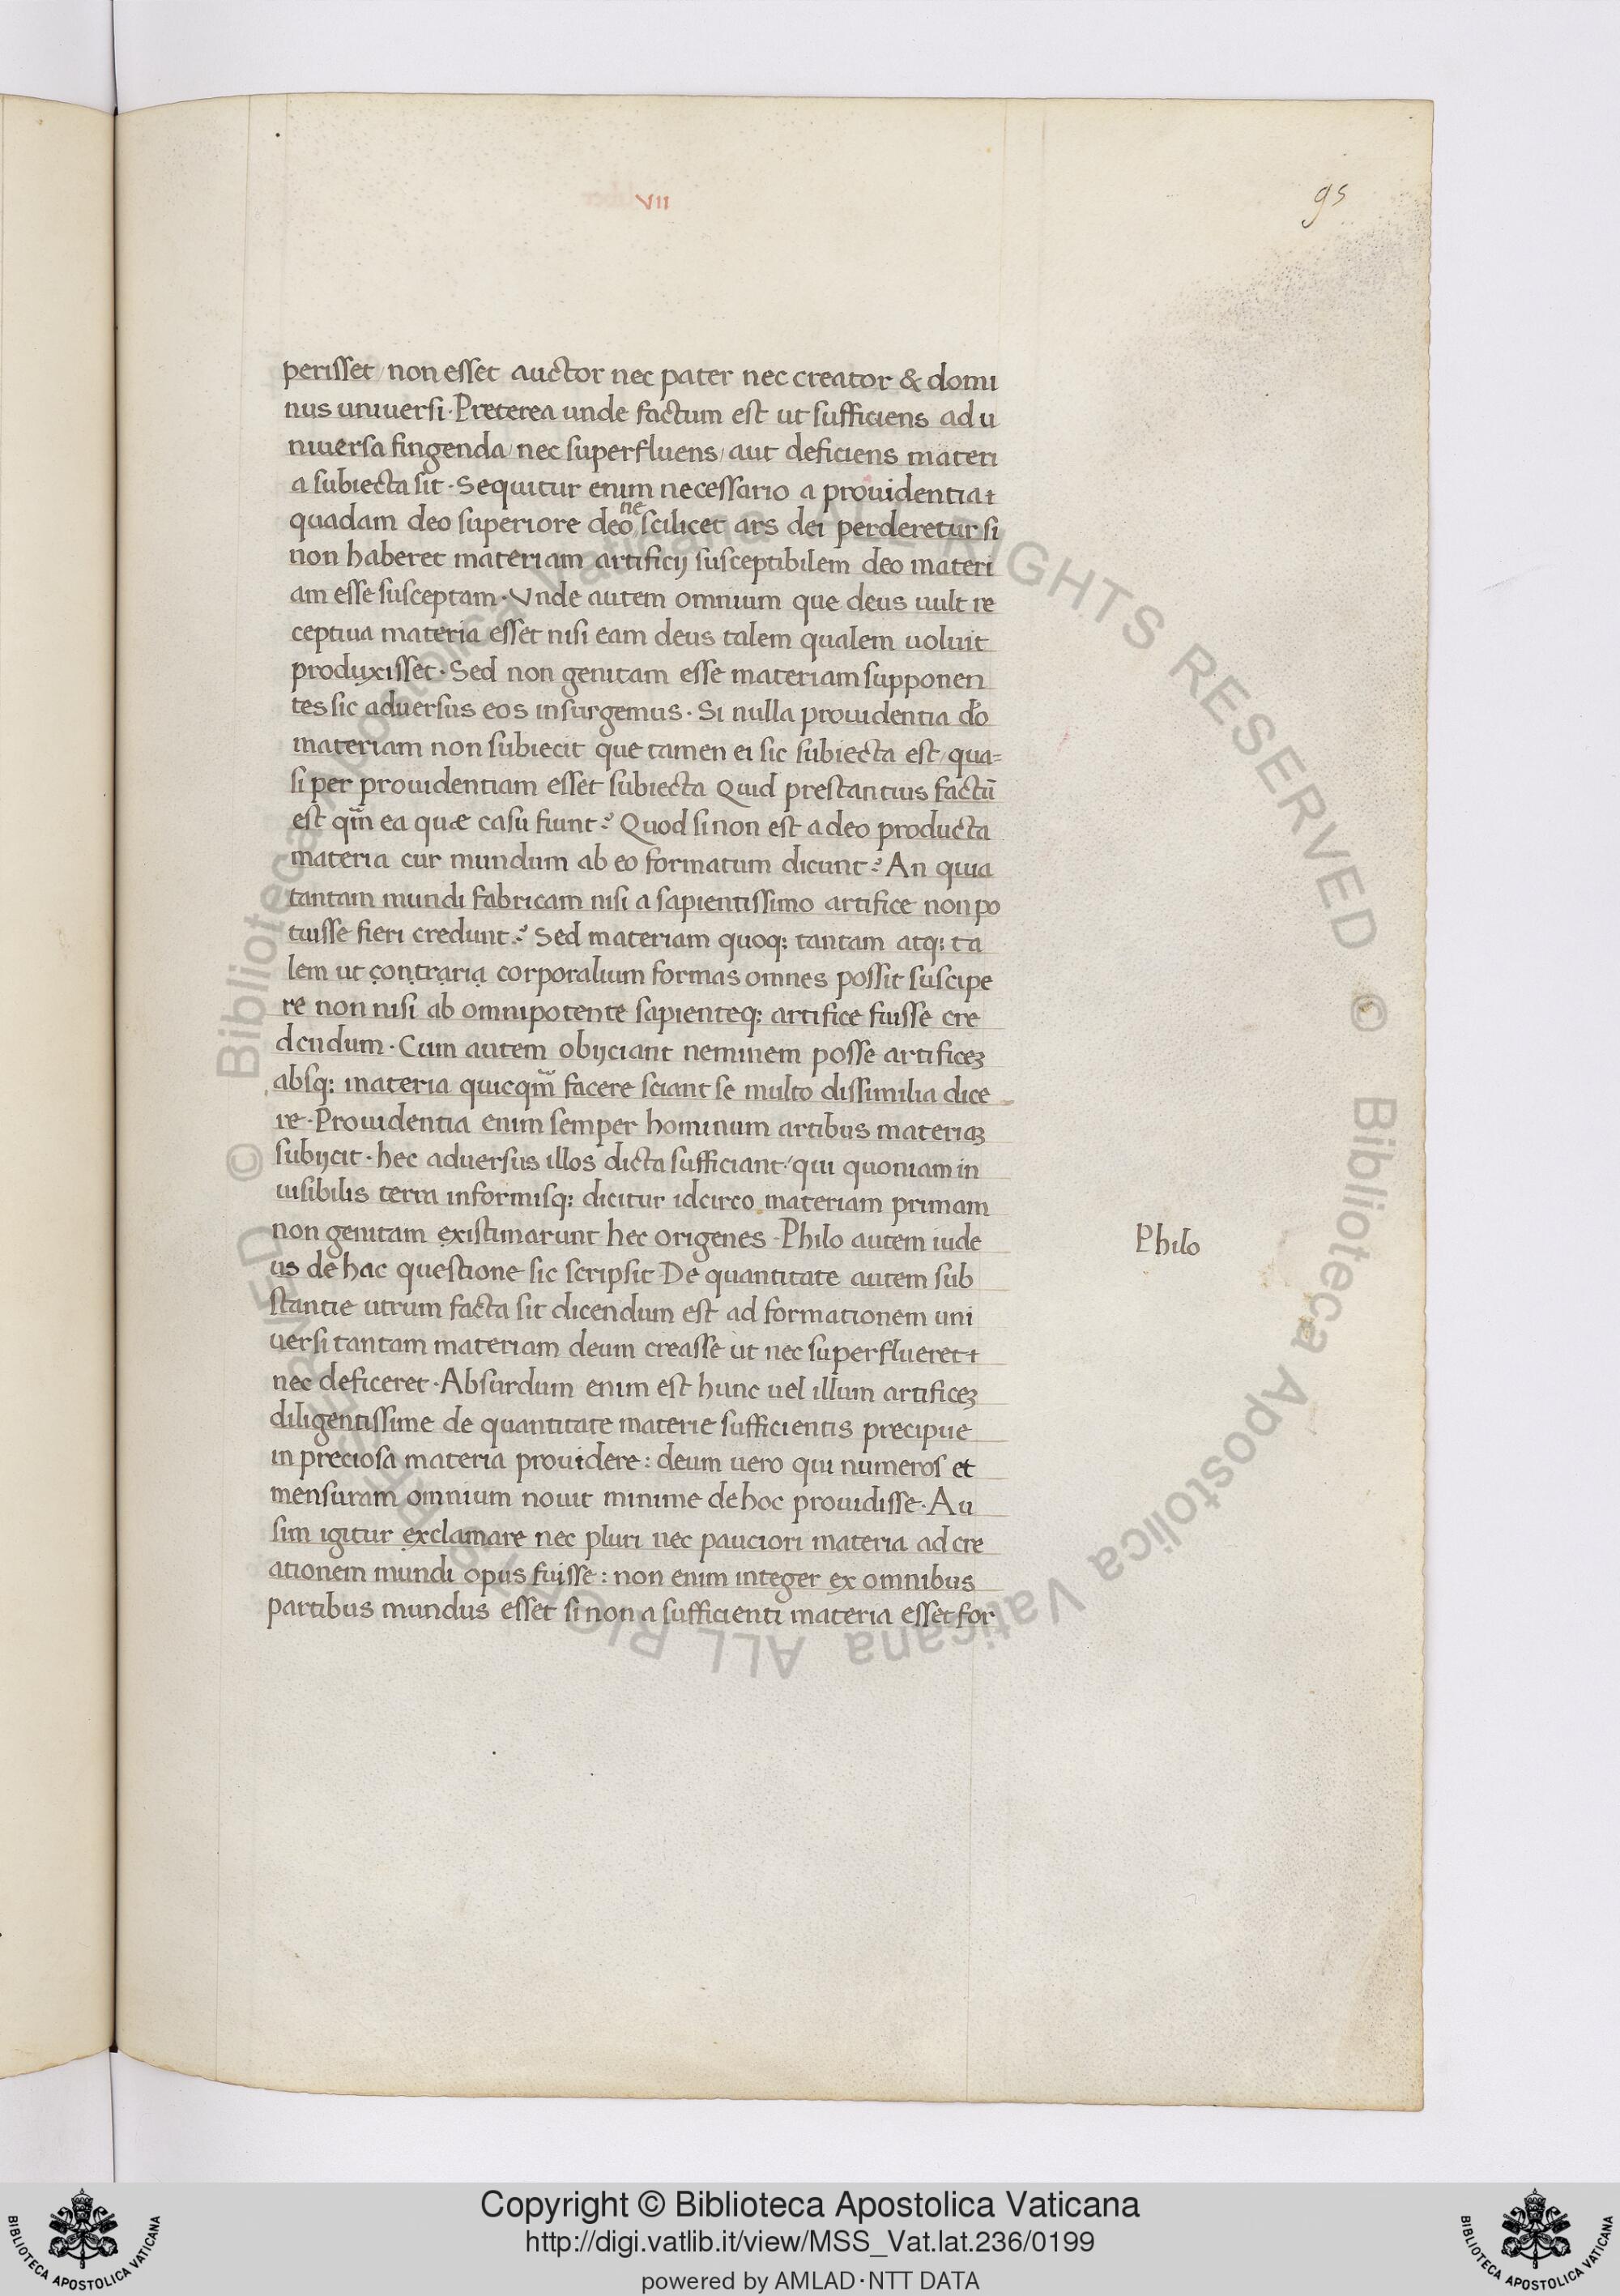 VII
95
perisset / non esset auctor nec pater nec creator & domi
nus uniuersi · Preterea unde factum est ut sufficiens ad u
niuersa fingenda / nec superfluens / aut deficiens materi
a subiecta sit · Sequitur enim necessario a prouidentia ⁊
ne
quadam deo superiore deo scilicet ars dei perderetur si
non haberet materiam artificij susceptibilem deo materi
am esse susceptam · Vnde autem omnium que deus uult re
ceptiua materia esset nisi eam deus talem qualem uoluit
produxisset · Sed non genitam esse materiam supponen
tes sic aduersus eos insurgemus · Si nulla prouidentia do
materiam non subiecit que tamen ei sic subiecta est / qua=
si per prouidentiam esset subiecta Quid prestantius factū
est qm̄ ea quæ casu fiunt? Quod si non est a deo producta
materia cur mundum ab eo formatum dicunt? An quia
tantam mundi fabricam nisi a sapientissimo artifice non po
tuisse fieri credunt? Sed materiam quoq; tantam atq; ta
lem ut contraria corporalium formas omnes possit suscipe
re non nisi ab omnipotente sapienteq; artifice fuisse cre
dendum · Cum autem obijciant neminem posse artificeꝫ
absq; materia quicqm̄ facere sciant se multo dissimilia dice
re · Prouidentia enim semper hominum artibus materiaꝫ
subijcit · hec aduersus illos dicta sufficiant / qui quoniam in
uisibilis terra informisq; dicitur idcirco materiam primam
non genitam existimarunt hec origenes · Philo autem iude
us de hac questione sic scripsit · De quantitate autem sub
stantie utrum facta sit dicendum est ad formationem uni
uersi tantam materiam deum creasse ut nec superflueret ⁊
nec deficeret · Absurdum enim est hunc uel illum artificeꝫ
diligentissime de quantitate materie sufficientis precipue
in preciosa materia prouidere : deum uero qui numeros et
mensuram omnium nouit minime de hoc prouidisse · Au
sim igitur exclamare nec pluri nec pauciori materia ad cre
ationem mundi opus fuisse : non enim integer ex omnibus
partibus mundus esset si non a sufficienti materia esset for
Philo
© Biblioteca Apostolica Vaticana ALL RIGHTS RESERVED
© Biblioteca Apostolica Vaticana ALL RIGHTS RESERVED
Copyright © Biblioteca Apostolica Vaticana
http://digi.vatlib.it/view/MSS_Vat.lat.236/0199
powered by AMLAD·NTT DATA
BIBLIOTECA APOSTOLICA VATICANA
BIBLIOTECA APOSTOLICA VATICANA